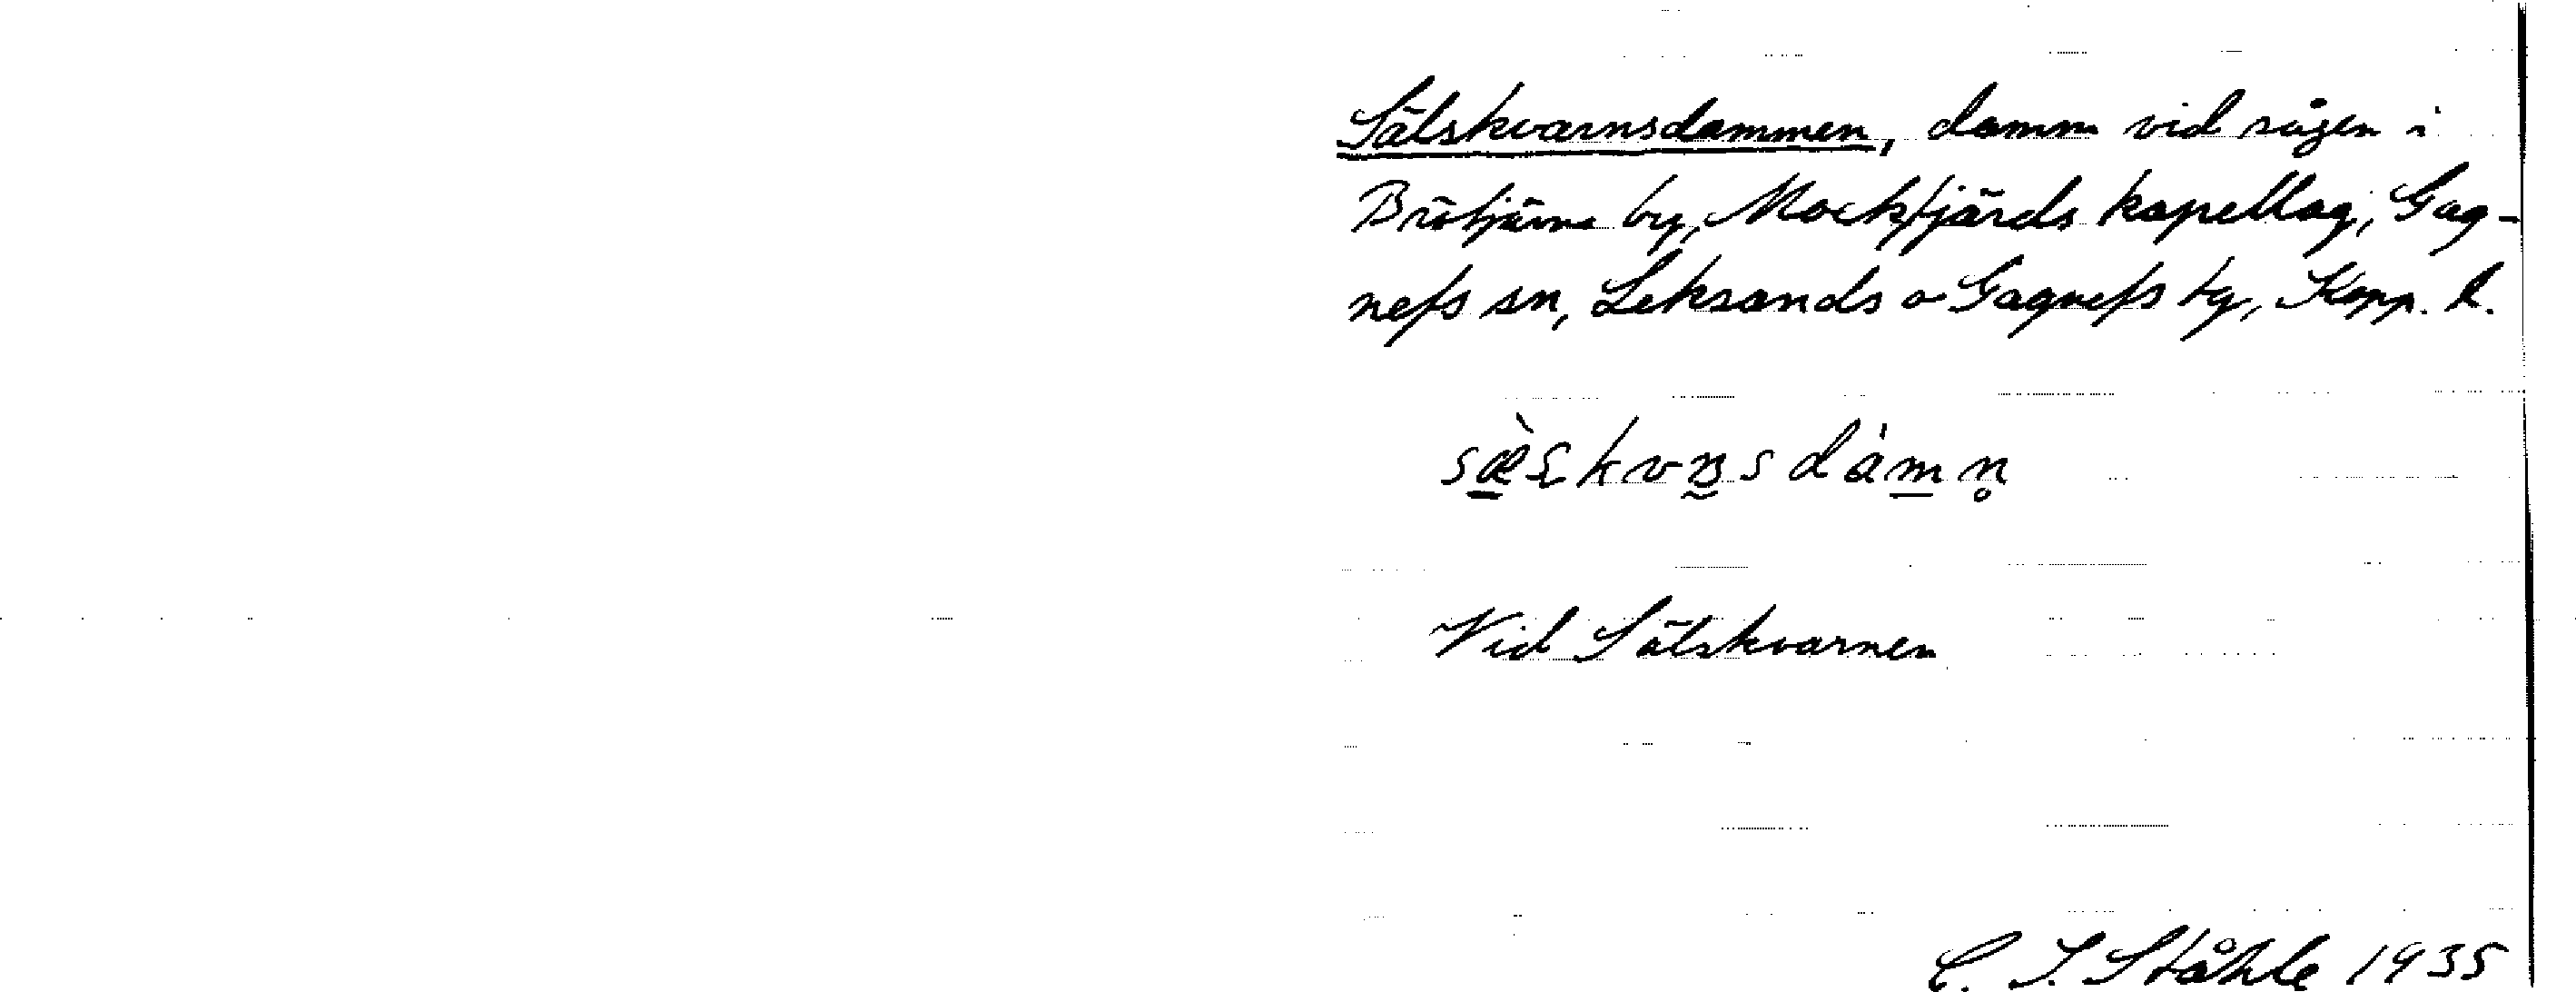 Sälskvarnsdammen, damm vid sågen i
Brötjärna by, Mockfjärds kapellag, Gag-
nefs sn, Leksands o Gagnefs tg, Kopp. l.
Vid Sälskvarnen
C. I. Ståhle 1935